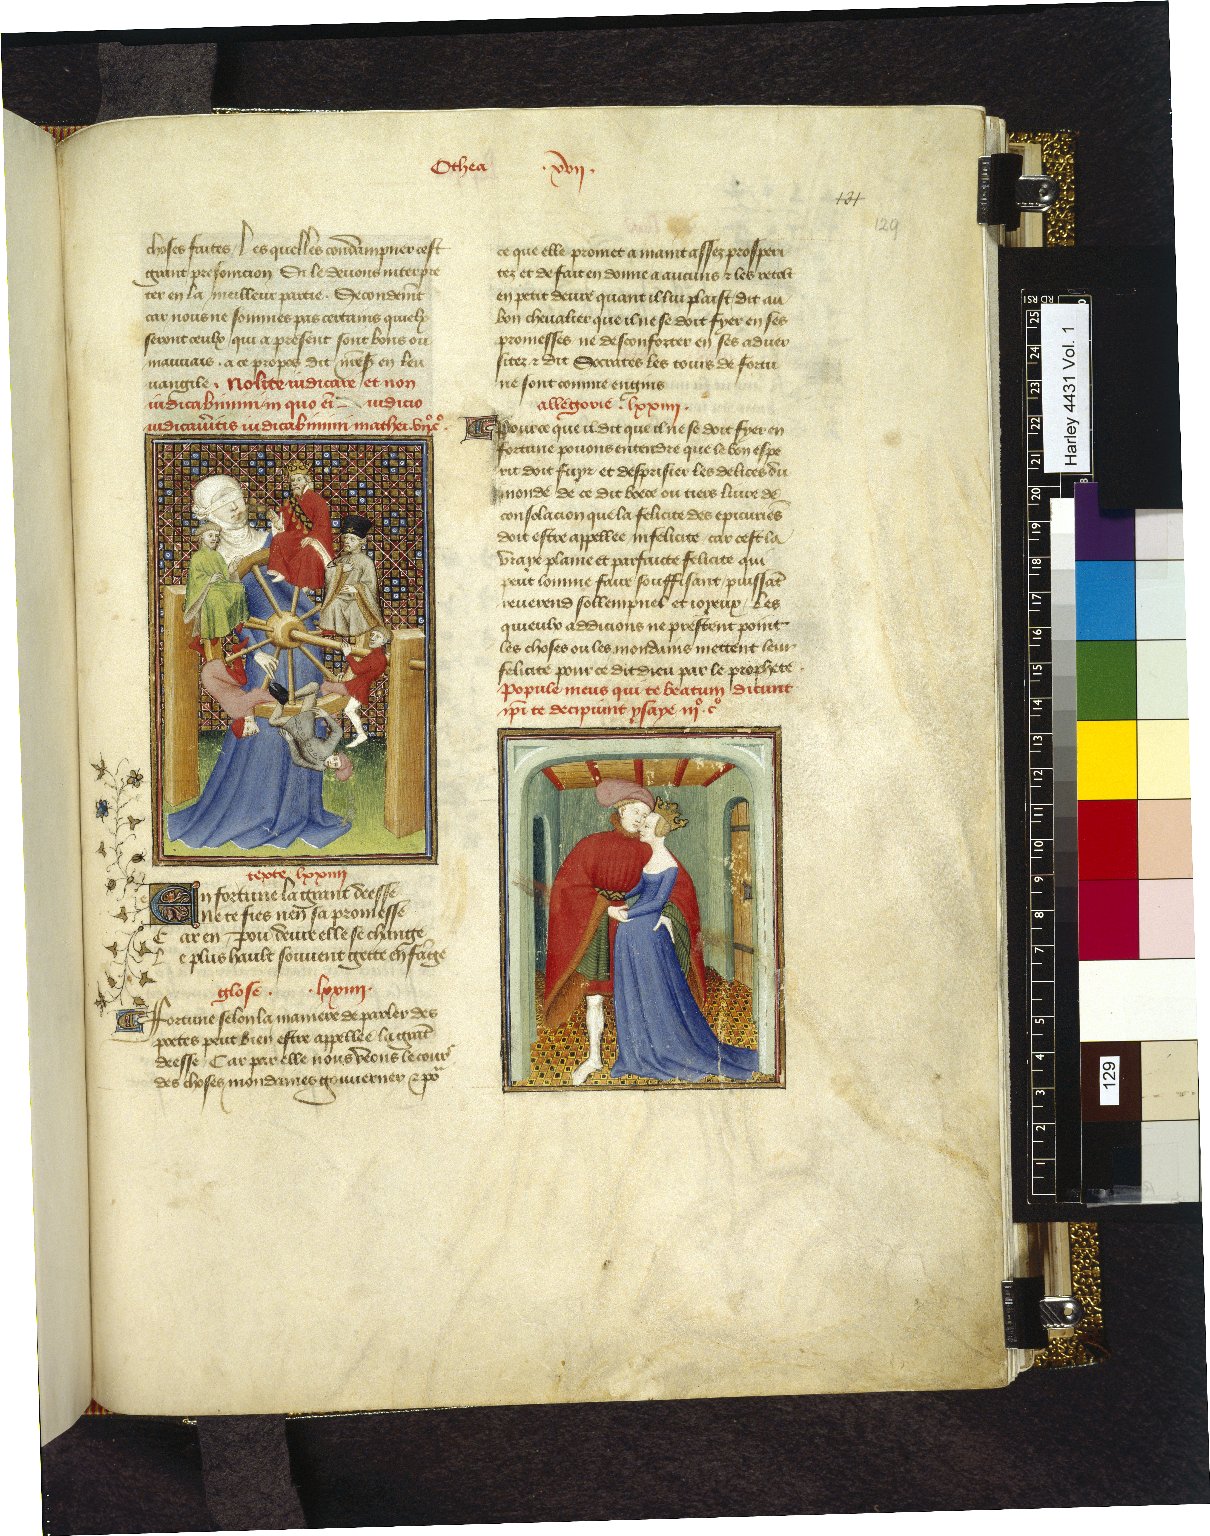 Othea .xvii.
131
129
choses faites / Les quelles condampner cest
grant presompcion Si le devons interpre
ter en la meilleur partie . Secondemt
car nous ne sommes pas certains quielz
seront ceulx qui a present sont bons ou
mauvais . a ce propos dit en leu
uangile . Nolite iudicare et non
iudicabimini in quo ei iudicio
iudicaveritis iudicabimini mathei
texte lxxiiii
En fortune la grant deesse
Ne te fies nen sa promesse
Car en pou deure elle se change
Le plus hault souvent gette en fange
glose . . lxxiiii .
Fortune selon la maniere de parler des
poetes peut bien estre appellee la grant
deesse / Car par elle nous veons le cours
des choses mondaines gouverner / et pour
ce que elle promet a maint assez prosperi
tez et de fait en donne a aucuns et les retolt
en petit deure quant il lui plaist dit au
bon chevalier que il ne se doit fyer en ses
promesses ne desconforter en ses adver
sitez et dit Socrates les tours de fortu
ne sont comme engins
allegorie . lxxiiii .
Pour ce que il dit que il ne se doit fyer en
fortune pouons entendre que le bon espe
rit doit fuyr et desprisier les delices du
monde de ce dit boece ou tiers livre de
consolacion que la felicite des epicuriens
doit estre appellee infelicite / car cest la
vraye plaine et parfaicte felicite qui
peut lomme faire souffisant puissant
reverend sollempnel et ioyeux / les
quieulx addicions ne prestent point
les choses ou les mondains mettent leur
felicite pour ce dit dieu par le prophete .
Popule meus qui te beatum dicunt
ipi te decipiunt ysaye iiiº . cº
Harley 4431 Vol. 1
129
25
24
23
22
21
20
19
18
17
16
15
14
13
12
11
10
9
8
7
5
4
3
2
1